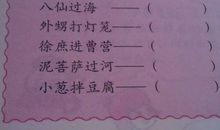 八仙过海——(　　)
外甥打灯笼——(　　)
徐庶进曹营——(　　)
泥菩萨过河——(　　)
小葱拌豆腐——(　　)